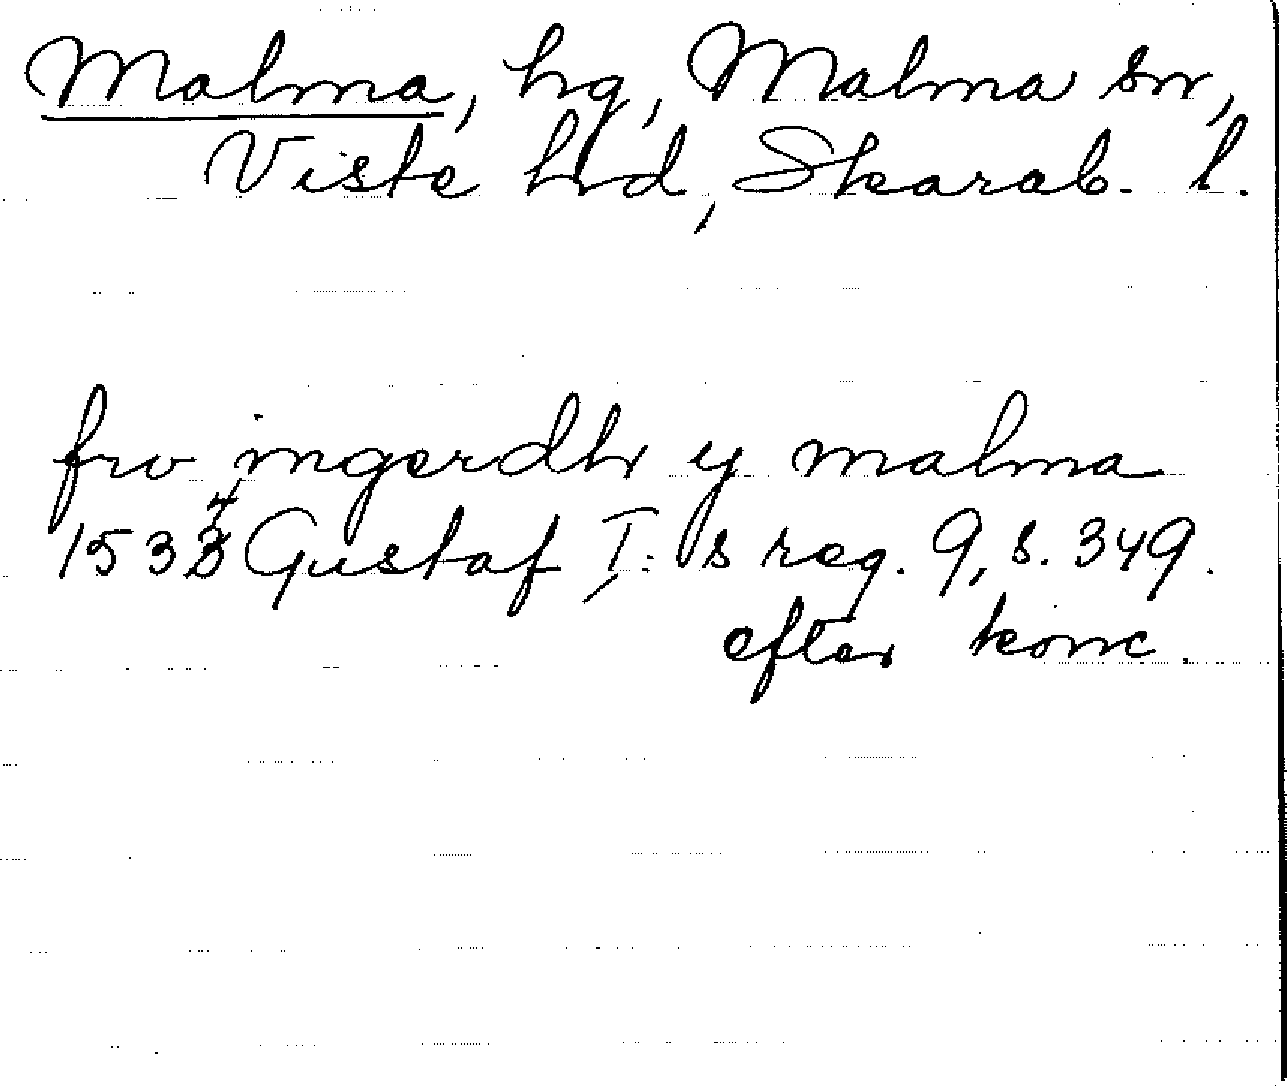 Malma, hg, Malma sn,
Viste hrd, Skarab. l.
fru ingerdh y malma
1534 Gustaf I:s reg. 9, s. 349.
efter konc.